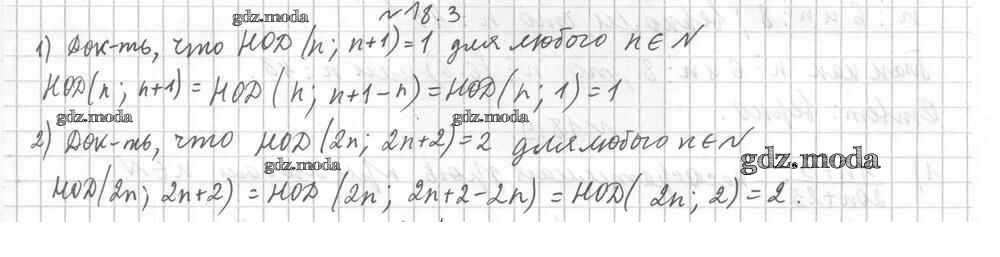 gdz.moda
№18.3.
1) Док-ть, что НОД(n; n+1)=1 для любого n∈N
НОД(n; n+1) = НОД(n; n+1-n) = НОД(n; 1)=1
gdz.moda gdz.moda
2) Док-ть, что НОД(2n; 2n+2)=2 для любого n∈N
gdz.moda gdz.moda
НОД(2n; 2n+2) = НОД(2n; 2n+2-2n) = НОД(2n; 2)=2.
gdz.moda